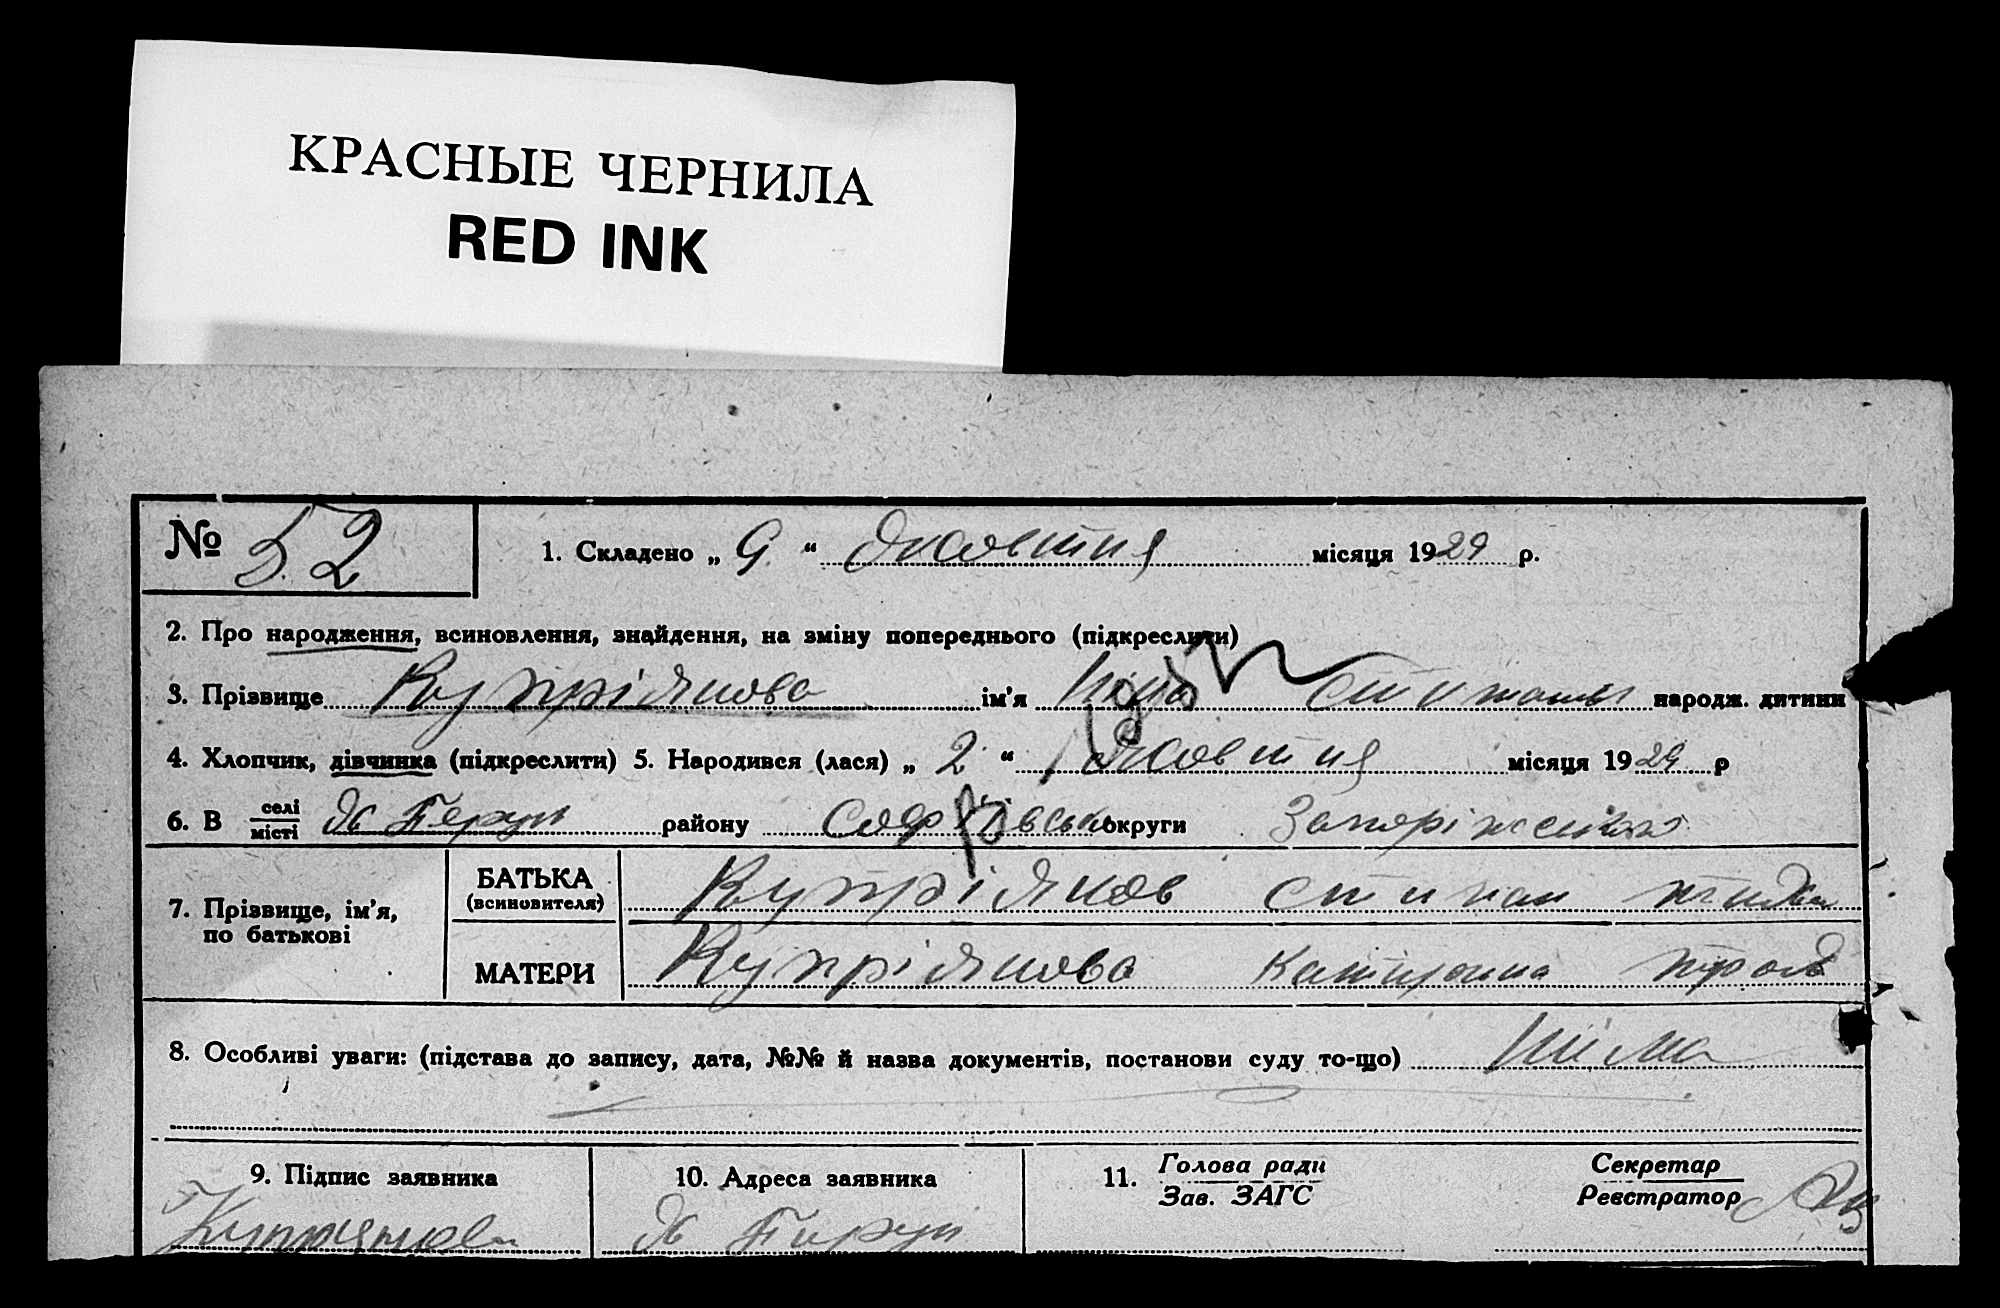 КРАСНЫЕ ЧЕРНИЛА
RED INK
№ 52
1. Складено „ 9 “ жовтня місяця 1929 р.
2. Про народження, всиновлення, знайдення, на зміну попереднього (підкреслити)
3. Прізвище Купріянова ім’я народж. дитини
4. Хлопчик, дівчинка (підкреслити) 5. Народився (лася) „ 2 “ жовтня місяця 1929 р
6. В селі місті району округи
7. Прізвище, ім’я, по батькові
БАТЬКА (всиновителя) Купріянов
МАТЕРИ Купріянова
8. Особливі уваги: (підстава до запису, дата, №№ й назва документів, постанови суду то-що) Німа
9. Підпис заявника 10. Адреса заявника 11. Голова ради Зав. ЗАГС Секретар Реєстратор